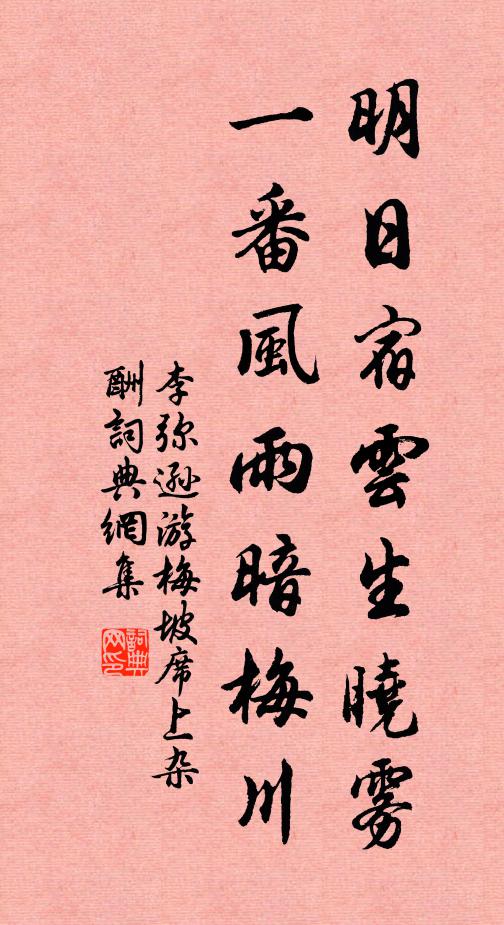 明日宿雲生曉霧
一番風雨暗梅川
李弥遜游梅坡席上杂
酬詞典網集
詞典網印